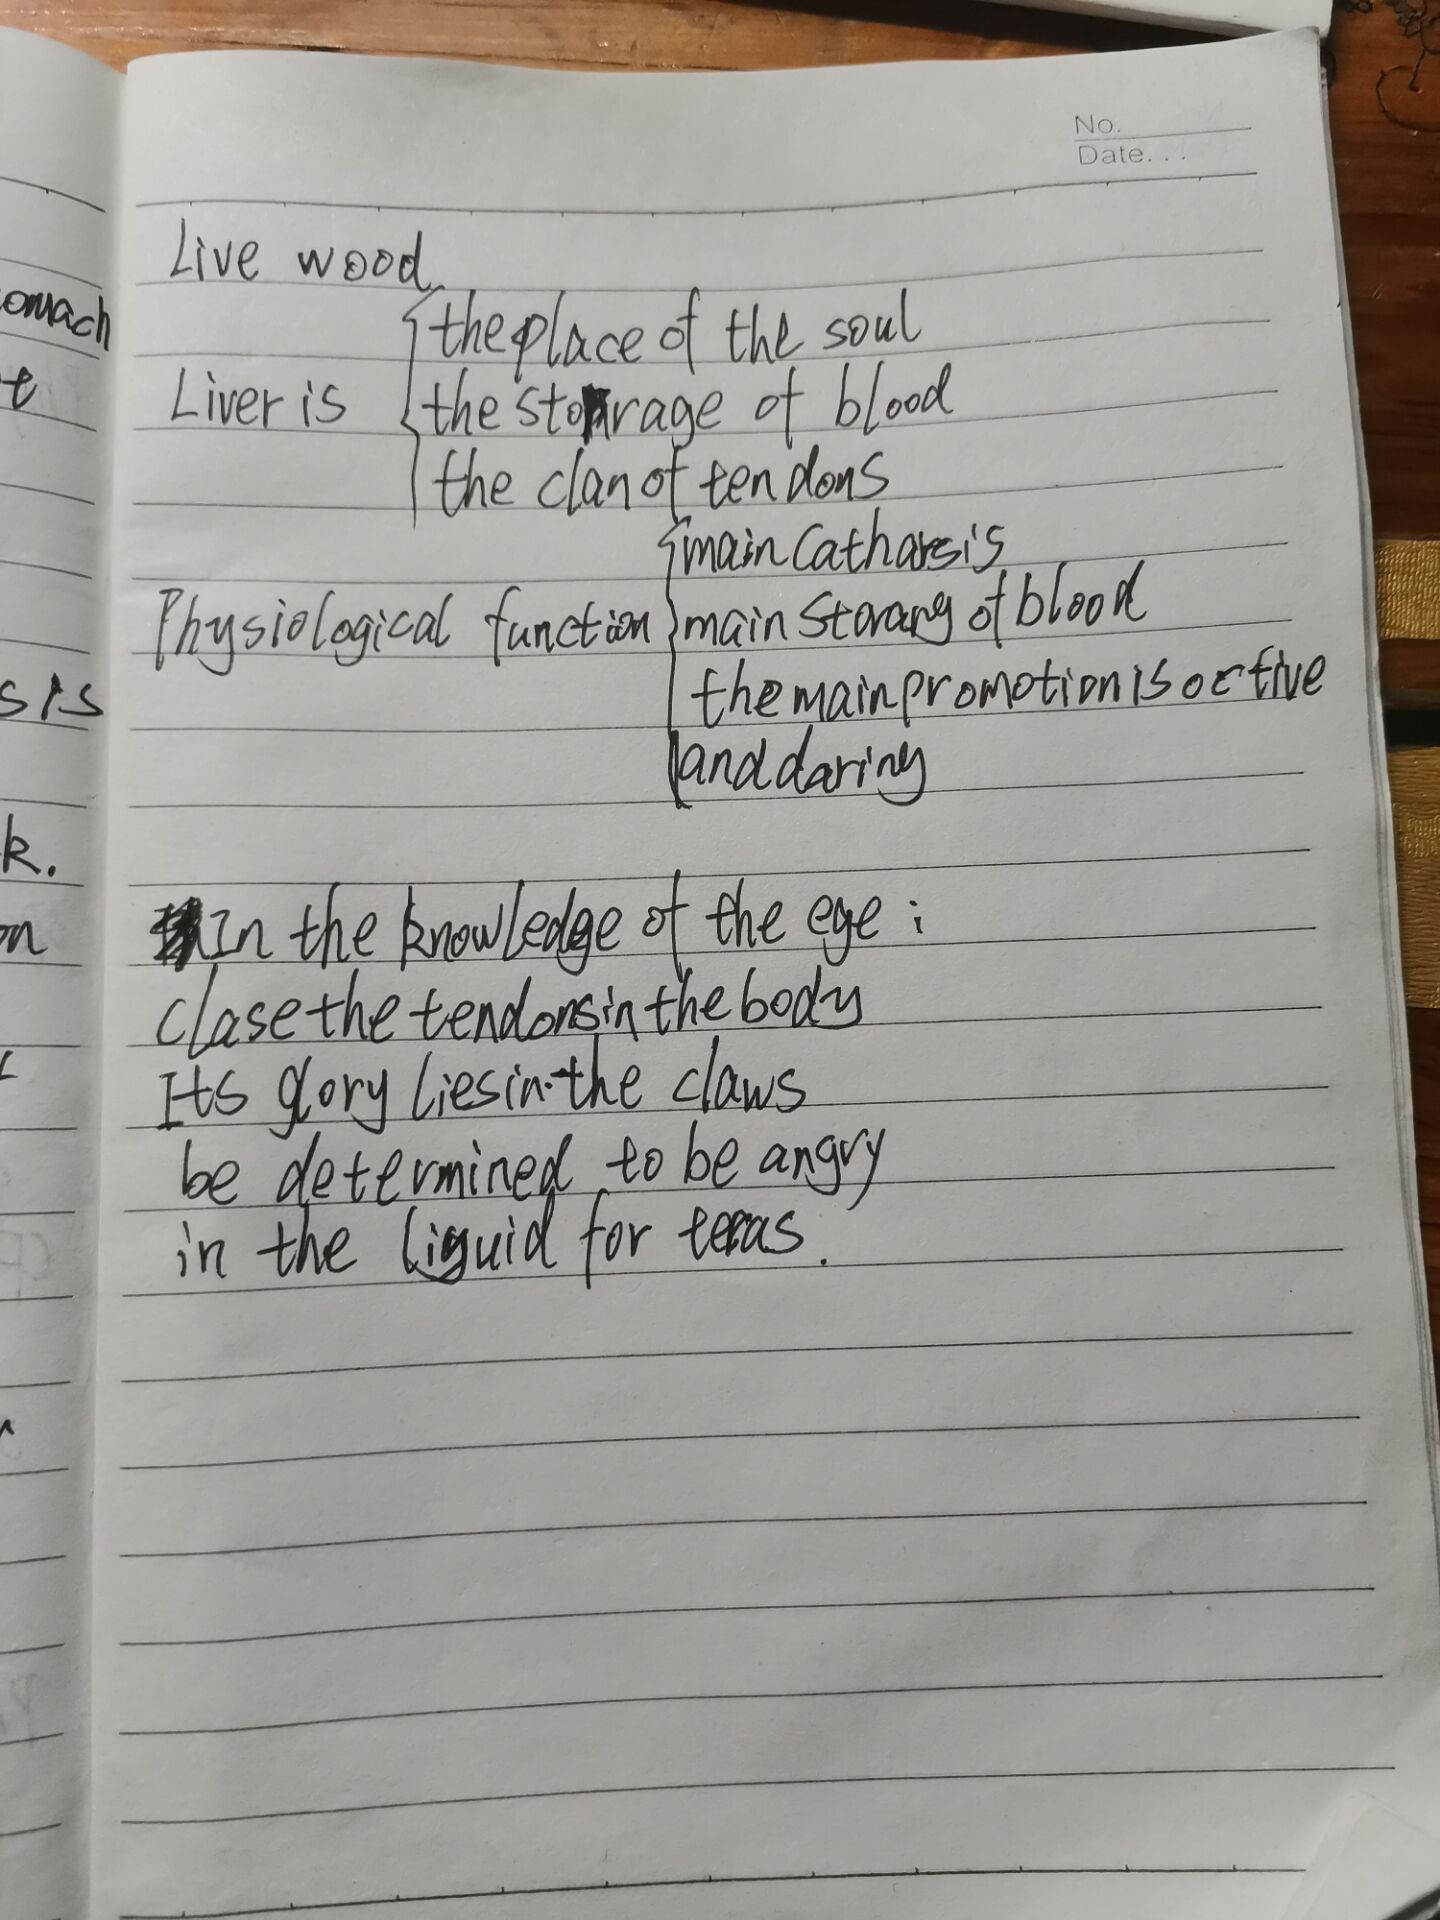 No.
Date...
Live wood
the place of the soul
Liver is
the storage of blood
the clan of tendons
main Catharsis
Physiological function
main of blood
the main promotion is active
and daring
In the knowledge of the eye:
clase the tendons in the body
Its glory lies in the claws
be determined to be angry
in the liquid for teras.
omach
sis
k.
on